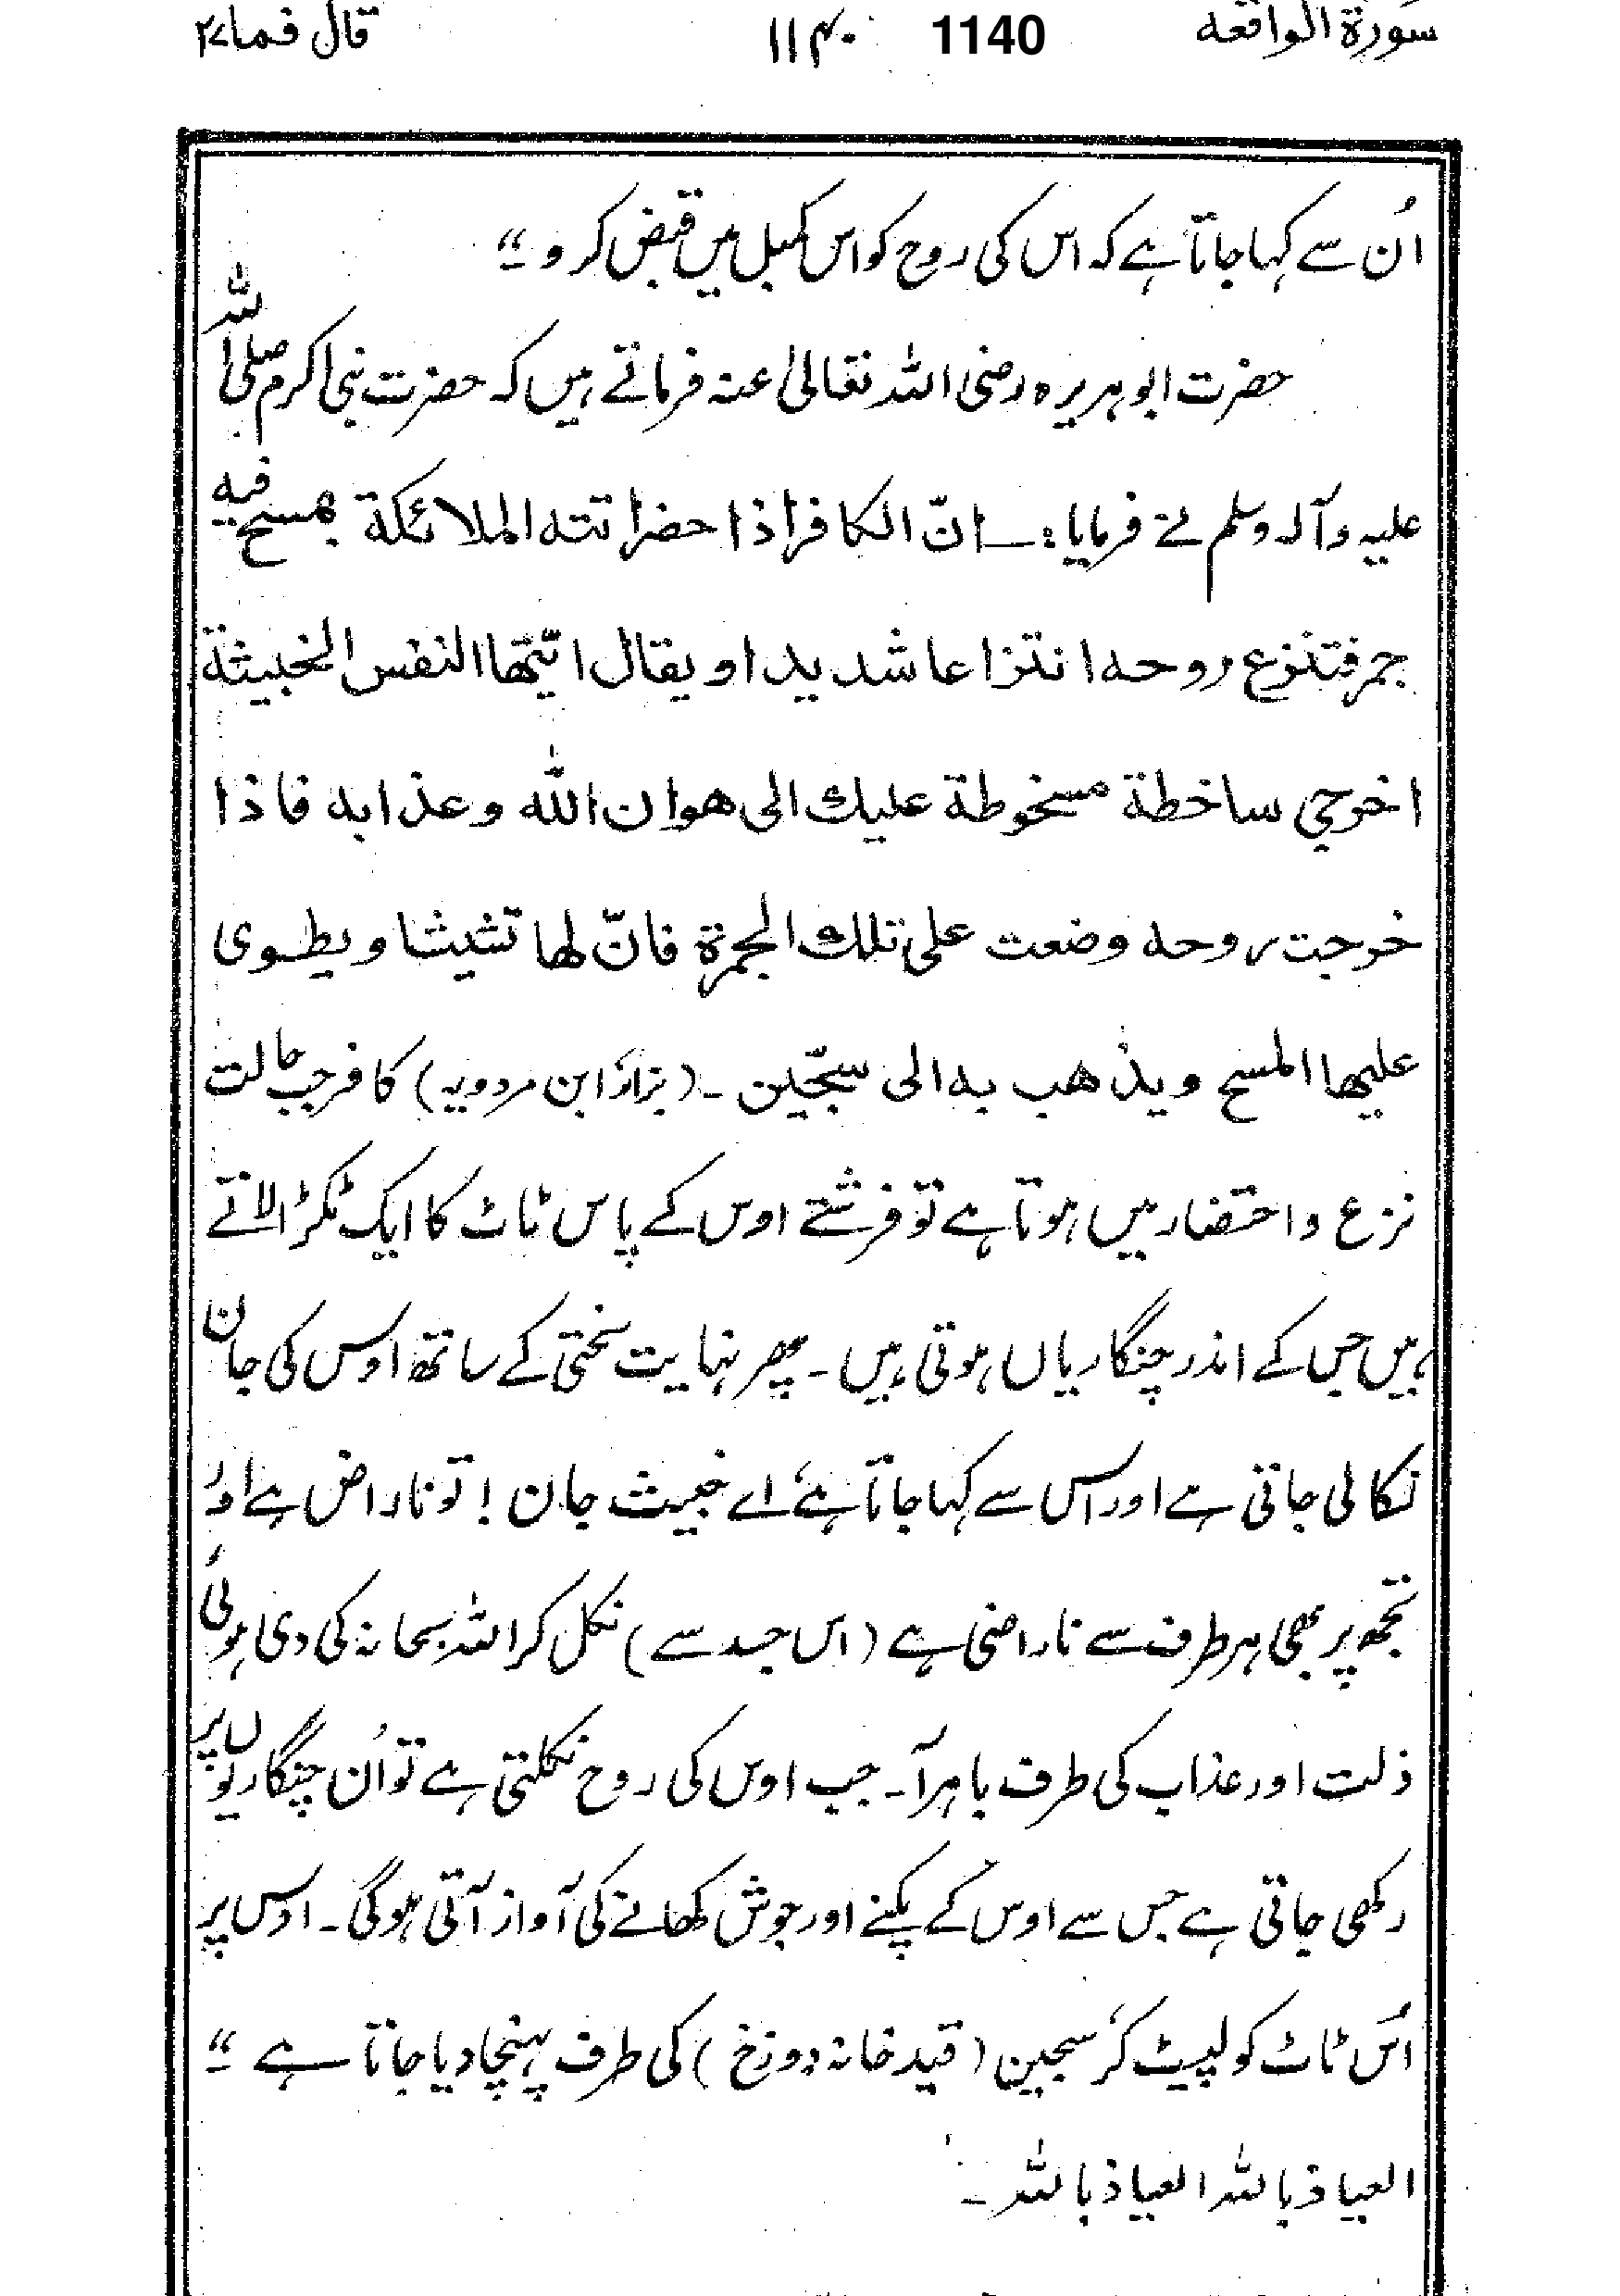 سورة الواقعه 1140 ۱۱۴۰ قال فما ۲۷
اُن سے کہا جاتا ہے کہ اس کی روح کو اس کمبل میں قبض کرو ۔"
حضرت ابو ہریرہ رضی اللہ تعالیٰ عنہ فرماتے ہیں کہ حضرت نبی اکرم صلی اللہ
علیہ وآلہ وسلم نے فرمایا :۔ انّ الكافر اذا حضر اتته الملائكة بمسح فيه
جمر فتنزع روحه انتزاعا شديدا و يقال ايّتها النفس الخبيثة
اخرجي ساخطة مسخوطة عليك الى هوان الله و عذابه فاذا
خرجت روحه وضعت على تلك الجمرة فانّ لها تشيشا و يطوى
عليها المسح و يذهب به الى سجّين ۔ (بزار، ابن مردویہ) کافر جب حالت
نزع و احتضار میں ہوتا ہے تو فرشتے اوس کے پاس ٹاٹ کا ایک ٹکڑا لاتے
ہیں جس کے اندر چنگاریاں ہوتی ہیں ۔ پھر نہایت سختی کے ساتھ اوس کی جان
نکالی جاتی ہے اور اس سے کہا جاتا ہے، اے خبیث جان ! تو ناراض ہے اور
تجھ پر بھی ہر طرف سے ناراضی ہے (اس جسد سے) نکل کر اللہ سبحانہ کی دی ہوئی
ذلت اور عذاب کی طرف باہر آ ۔ جب اوس کی روح نکلتی ہے تو اُن چنگاریوں پر
رکھی جاتی ہے جس سے اوس کے پکنے اور جوش کھانے کی آواز آتی ہوگی ۔ اوس پر
اُس ٹاٹ کو لپیٹ کر سجین (قید خانہ دوزخ) کی طرف پہنچا دیا جاتا ہے ۔"
العیاذ باللہ العیاذ باللہ ۔